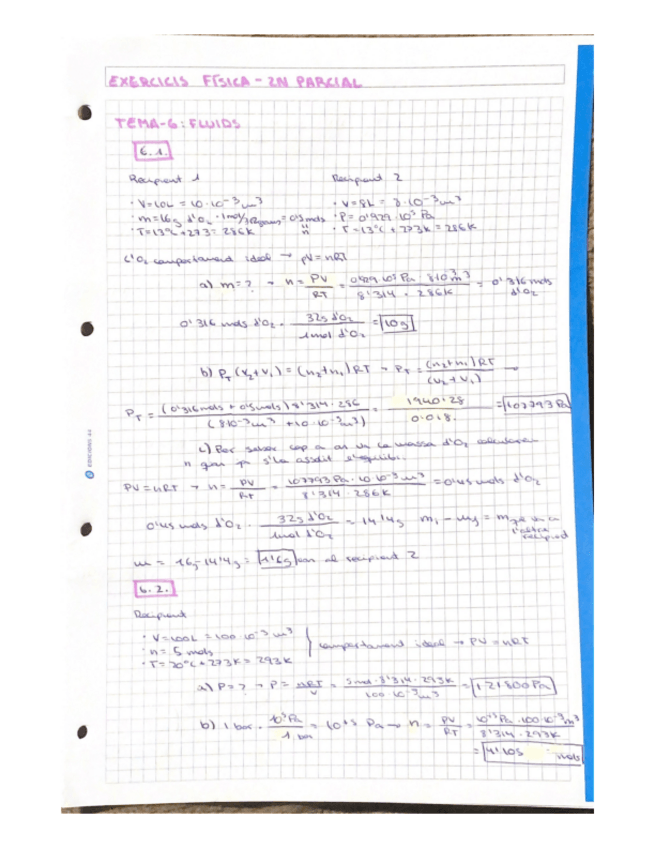 EXERCICIS FÍSICA - 2N PARCIAL
TEMA-6: FLUIDS
6.1.
Recipient 1 Recipient 2
· V=10L = 10·10⁻³m³ · V=8L = 8·10⁻³m³
· m=16g d'O₂ · 1mol/32grams = 0'5mols · P= 0'929·10⁵ Pa
· T=13°C+273= 286K n · T=13°C + 273K = 286K
L'O₂ comportament ideal → pV=nRT
a) m=? → n = PV/RT = 0'929·10⁵ Pa · 8·10⁻³m³ / 8'314 · 286K = 0'316 mols d'O₂
0'316 mols d'O₂ · 32g d'O₂ / 1mol d'O₂ = 10g
b) P_T (V₂+V₁) = (n₂+n₁)RT → P_T = (n₂+n₁)RT / (V₂+V₁) →
P_T = (0'316mols + 0'5mols) 8'314 · 286 / (8·10⁻³m³ + 10·10⁻³m³) = 1940'28 / 0'018 = 107793 Pa
c) Per saber cap a on va la massa d'O₂ calcularem
n quan ja s'ha assolit l'equilibri.
PV=nRT → n = PV/RT = 107793 Pa · 10·10⁻³m³ / 8'314 · 286K = 0'45 mols d'O₂
0'45 mols d'O₂ · 32g d'O₂ / 1mol d'O₂ = 14'4g m₁ - m = m que va a l'altre recipient
m = 16g-14'4g = 1'6g van al recipient 2
6.2.
Recipient
· V=100L = 100·10⁻³m³
· n= 5 mols } comportament ideal → PV=nRT
· T= 20°C+273K= 293K
a) P=? → P = nRT/V = 5mol·8'314·293K / 100·10⁻³m³ = 121800 Pa
b) 1 bar · 10⁵Pa / 1 bar = 10⁵ Pa → n = PV/RT = 10⁵Pa·100·10⁻³m³ / 8'314·293K
= 4'105 mols